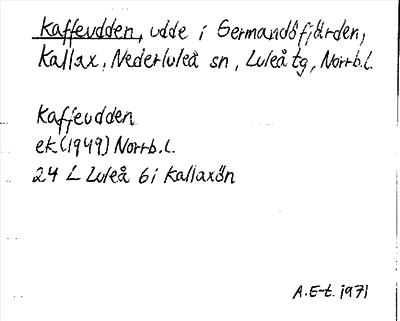 Kaffeudden, udde i Germandöfjärden,
Kallax, Nederluleå sn, Luleå tg, Norrb.l.
Kaffeudden
ek (1949) Norrb.l.
24 L Luleå 6i Kallaxön
A.E-t. 1971